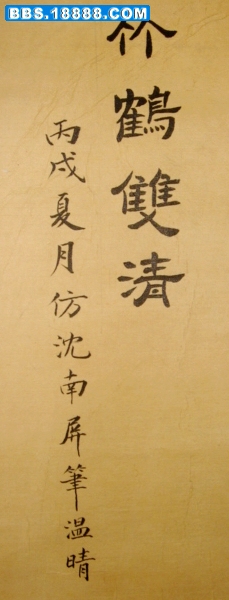 BBS.18888.COM
竹鶴雙清
丙戌夏月仿沈南屏筆温晴